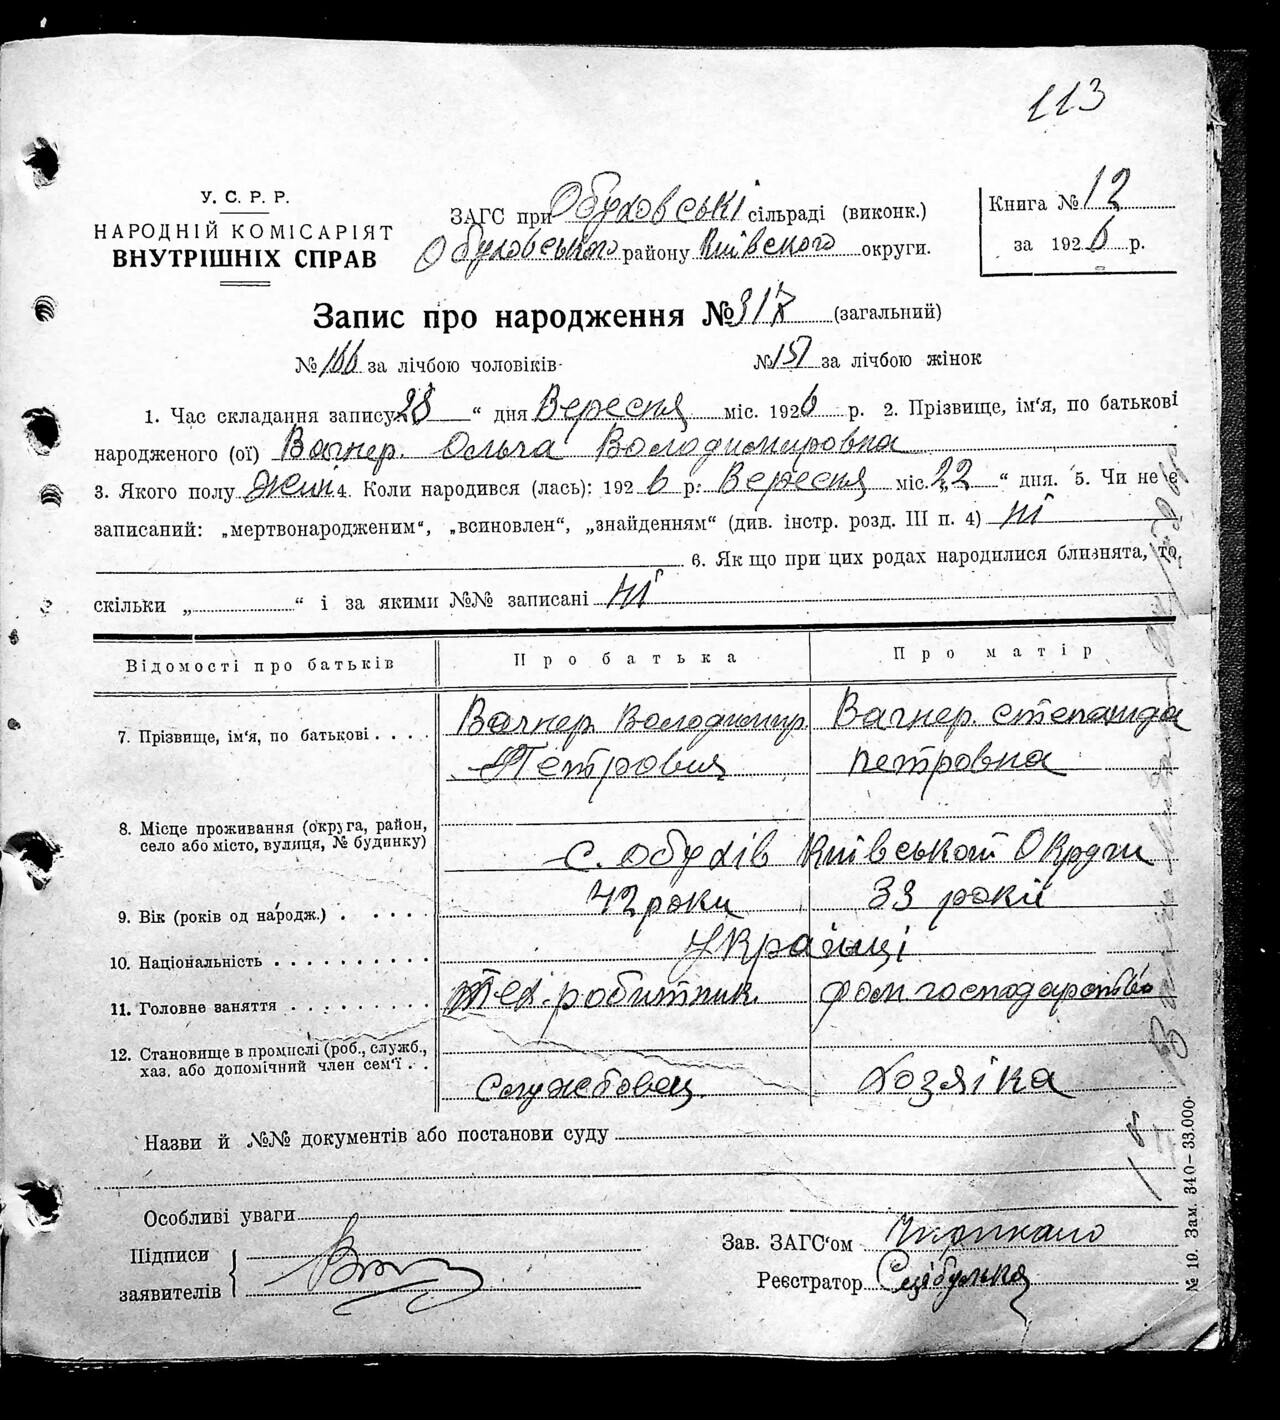 113
У. С. Р. Р.
НАРОДНІЙ КОМІСАРІЯТ
ВНУТРІШНІХ СПРАВ
ЗАГС при Обуховські сільраді (виконк.)
Обуховського району Київского округи.
Книга № 12
за 1926 р.
Запис про народження № 317 (загальний)
№ 166 за лічбою чоловіків
№ 151 за лічбою жінок
1. Час складання запису 28 “ дня Вересня міс. 1926 р. 2. Прізвище, ім'я, по батькові
народженого (ої) Вагнер Ольга Володимировна
3. Якого полу жін 4. Коли народився (лась): 1926 р. Вересня міс. „22 “ дня. 5. Чи не є
записаний: „мертвонародженим“, „всиновлен“, „знайденням“ (див. інстр. розд. III п. 4) ні
6. Як що при цих родах народилися близнята, то
скільки „ “ і за якими №№ записані ні
Відомості про батьків Про батька Про матір
7. Прізвище, ім'я, по батькові . . . . Вагнер Володимир Вагнер Степанида
Петрович петровна
8. Місце проживання (округа, район,
село або місто, вулиця, № будинку) с. Обухів Київської Округи
9. Вік (років од народж.) . . . . . 42 роки 33 рокі
10. Національність . . . . . . . . . . Українці
11. Головне заняття . . . . . . . . Тех. робитник дом господарство
12. Становище в промислі (роб., служб.,
хаз. або допомічний член сем'ї . . службовец хозяйка
Назви й №№ документів або постанови суду
Особливі уваги
Підписи
заявителів
Зав. ЗАГС'ом
Реєстратор
№ 10. Зам. 340—33.000.